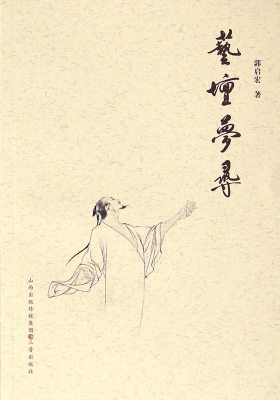 藝壇夢尋
郭启宏 著
山西出版传媒集团
三晋出版社